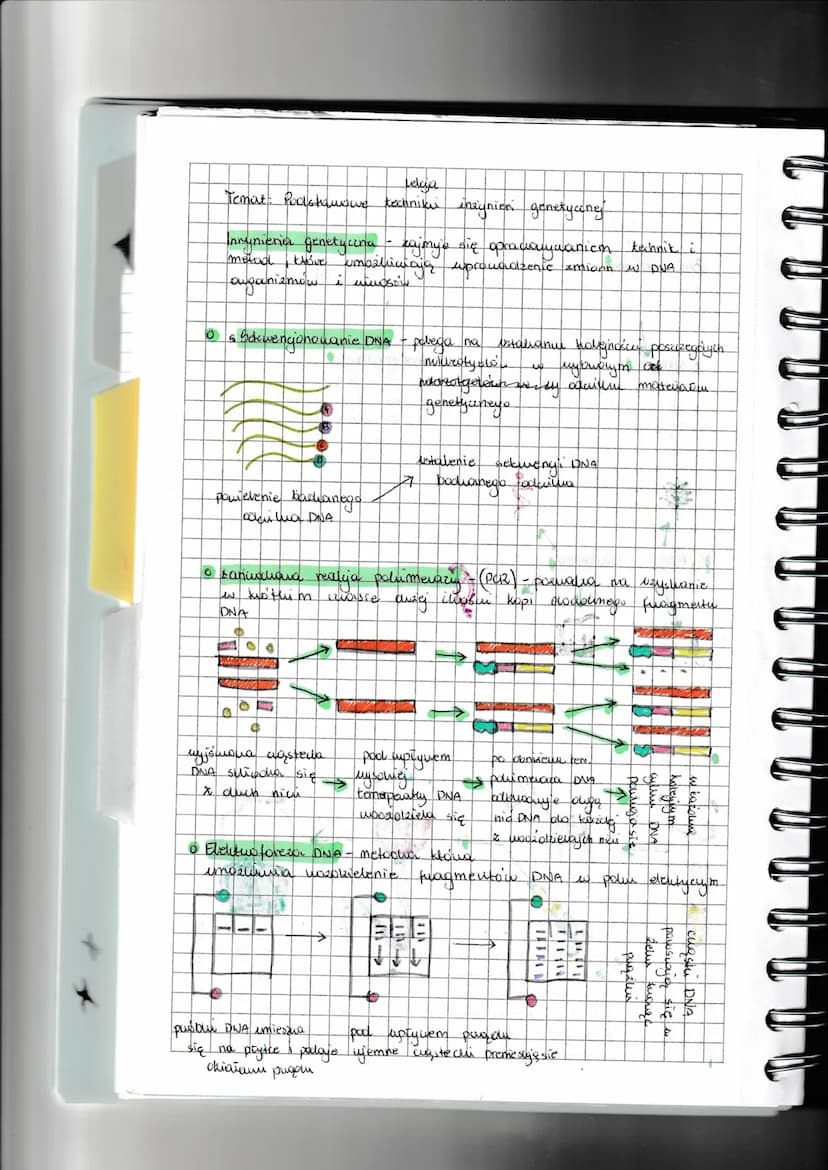 Lekcja
Temat: Podstawowe techniki inżynieri genetycznej
Inżynieria genetyczna - zajmuje się opracowywaniem technik i
metod, które umożliwiają wprowadzenie zmian w DNA
organizmów i wirusów
Sekwencjonowanie DNA - polega na ustalaniu kolejności poszczególnych
nukleotydów w wybranym
odcinku materiału
genetycznego
A
B
C
D
ustalenie sekwencji DNA
badanego odcinka
powielenie badanego
odcinka DNA
Łańcuchowa reakcja polimerazy - (PCR) - pozwala na uzyskanie
w krótkim czasie dużej ilości kopi dowolnego fragmentu
DNA
wyjściowa cząsteczka
DNA składa się
z dwóch nici
pod wpływem
wysokiej
temperatury DNA
rozdziela się
po obniżeniu tem.
polimeraza DNA
odbudowuje drugą
nić DNA do każdej
z rozdzielonych nici
w każdym
kolejnym
cyklu DNA
powiela się
Elektroforeza DNA - metoda która
umożliwia rozdzielenie fragmentów DNA w polu elektrycznym
próbki DNA umieszcza
się na płytce i poddaje
działaniu prądu
pod wpływem prądu
ujemne cząsteczki przemieszczają się
cząstki DNA
poruszają się w
żelu tworząc
prążki